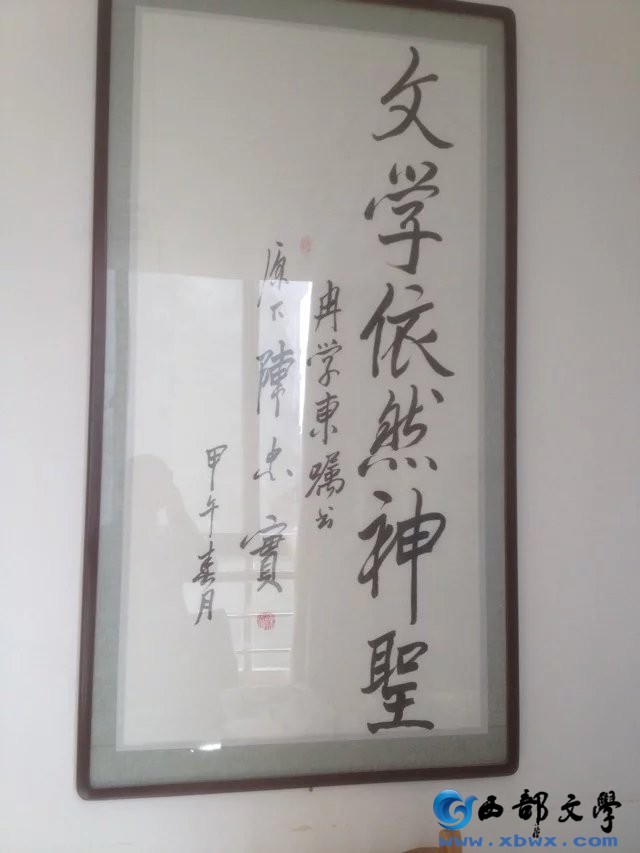 文学依然神聖
冉学東嘱书
原下陳忠實
甲午春月
西部文學
www.xbwx.com